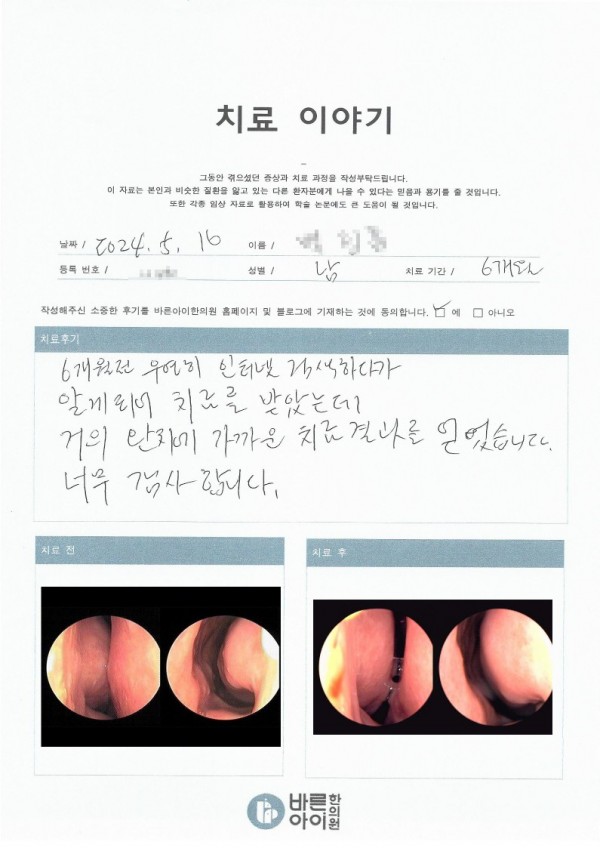 치료 이야기
그동안 겪으셨던 증상과 치료 과정을 작성부탁드립니다.
이 자료는 본인과 비슷한 질환을 앓고 있는 다른 환자분에게 나을 수 있다는 믿음과 용기를 줄 것입니다.
또한 각종 임상 자료로 활용하여 학술 논문에도 큰 도움이 될 것입니다.
날짜 / 2024. 5. 16 이름 /
등록 번호 / 성별 / 남 치료 기간 / 6개월
작성해주신 소중한 후기를 바른아이한의원 홈페이지 및 블로그에 기재하는 것에 동의합니다. 예 아니오
치료후기
6개월전 우연히 인터넷 검색하다가
알게되어 치료를 받았는데
거의 완치에 가까운 치료결과를 얻었습니다.
너무 감사합니다.
치료 전
치료 후
바른아이한의원